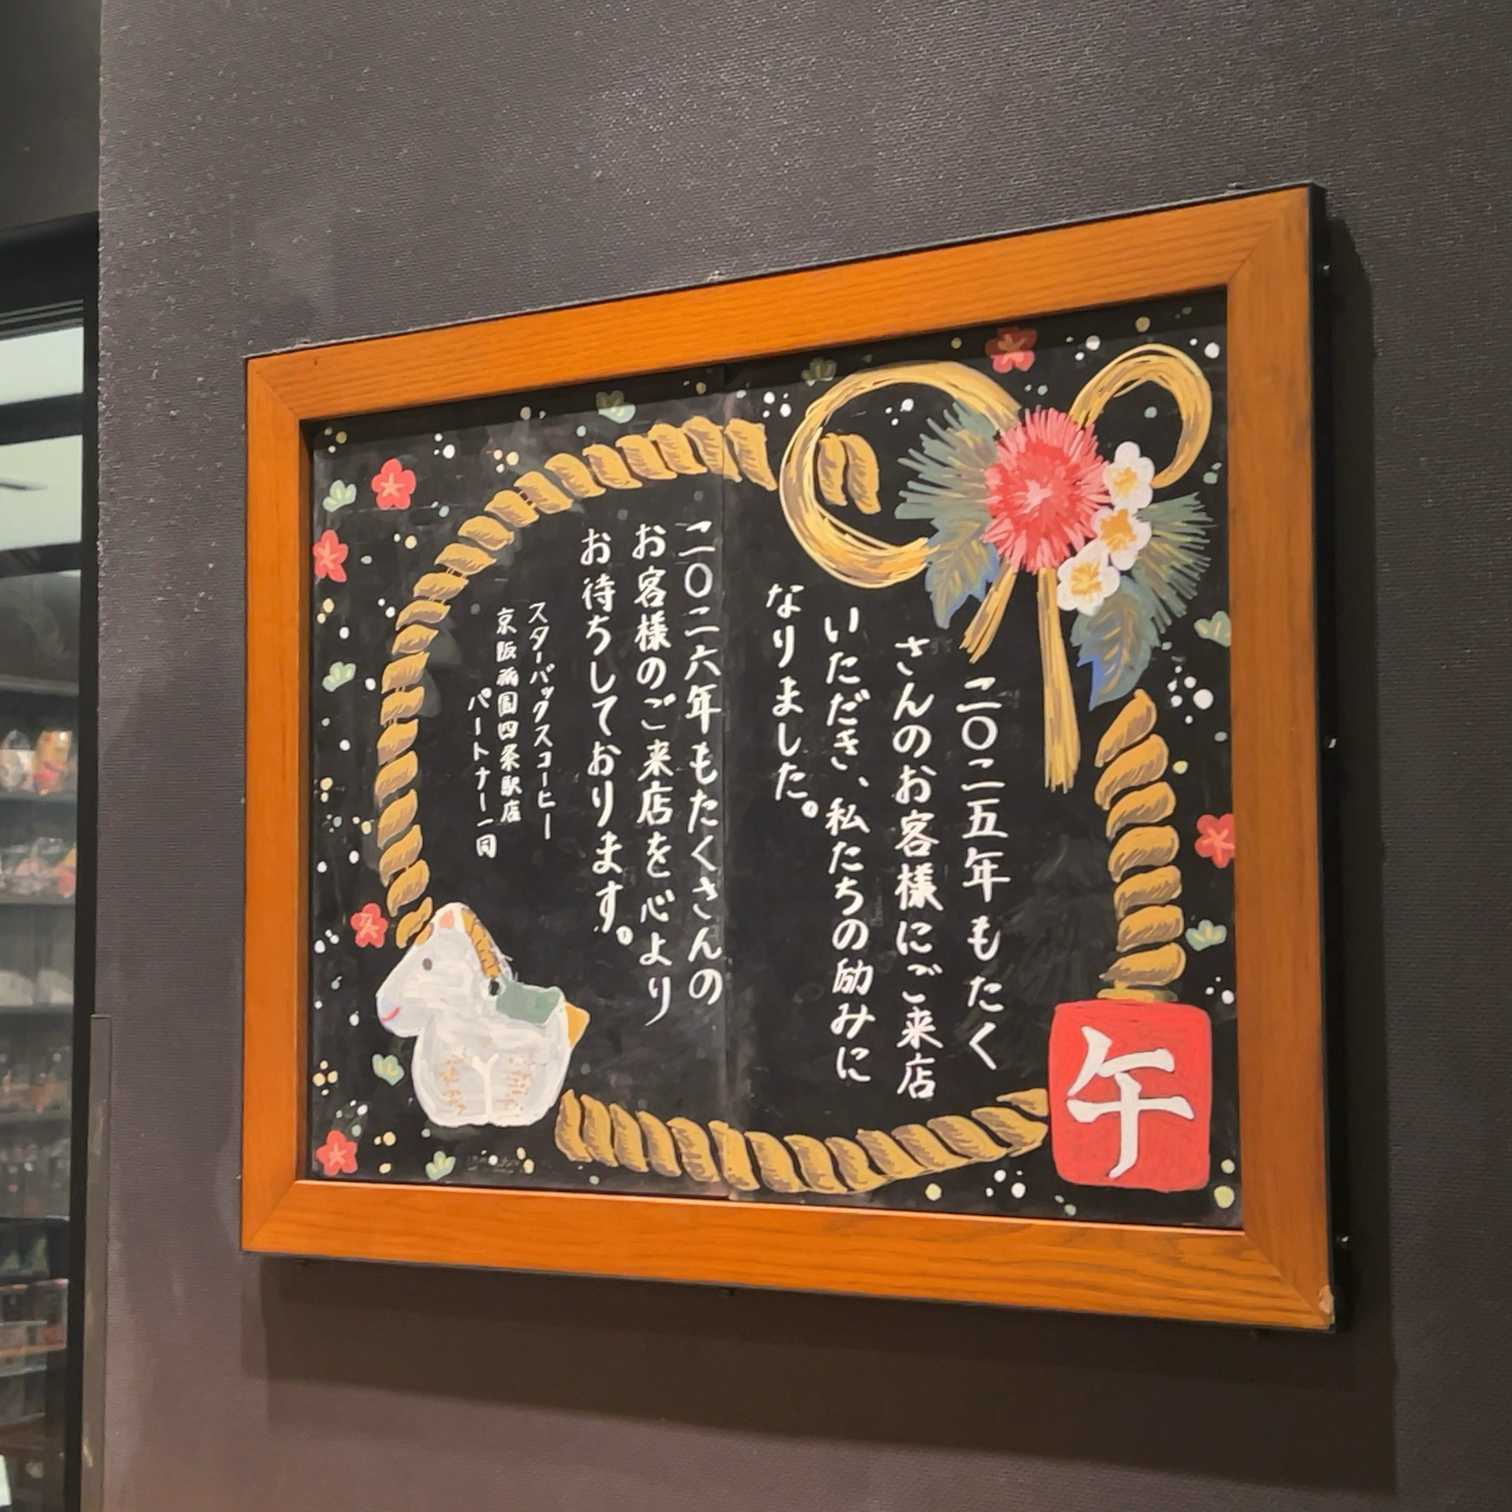 二〇二五年もたく
さんのお客様にご来店
いただき、私たちの励みに
なりました。
二〇二六年もたくさんの
お客様のご来店を心より
お待ちしております。
スターバックスコーヒー
京阪祇園四条駅店
パートナー一同
午